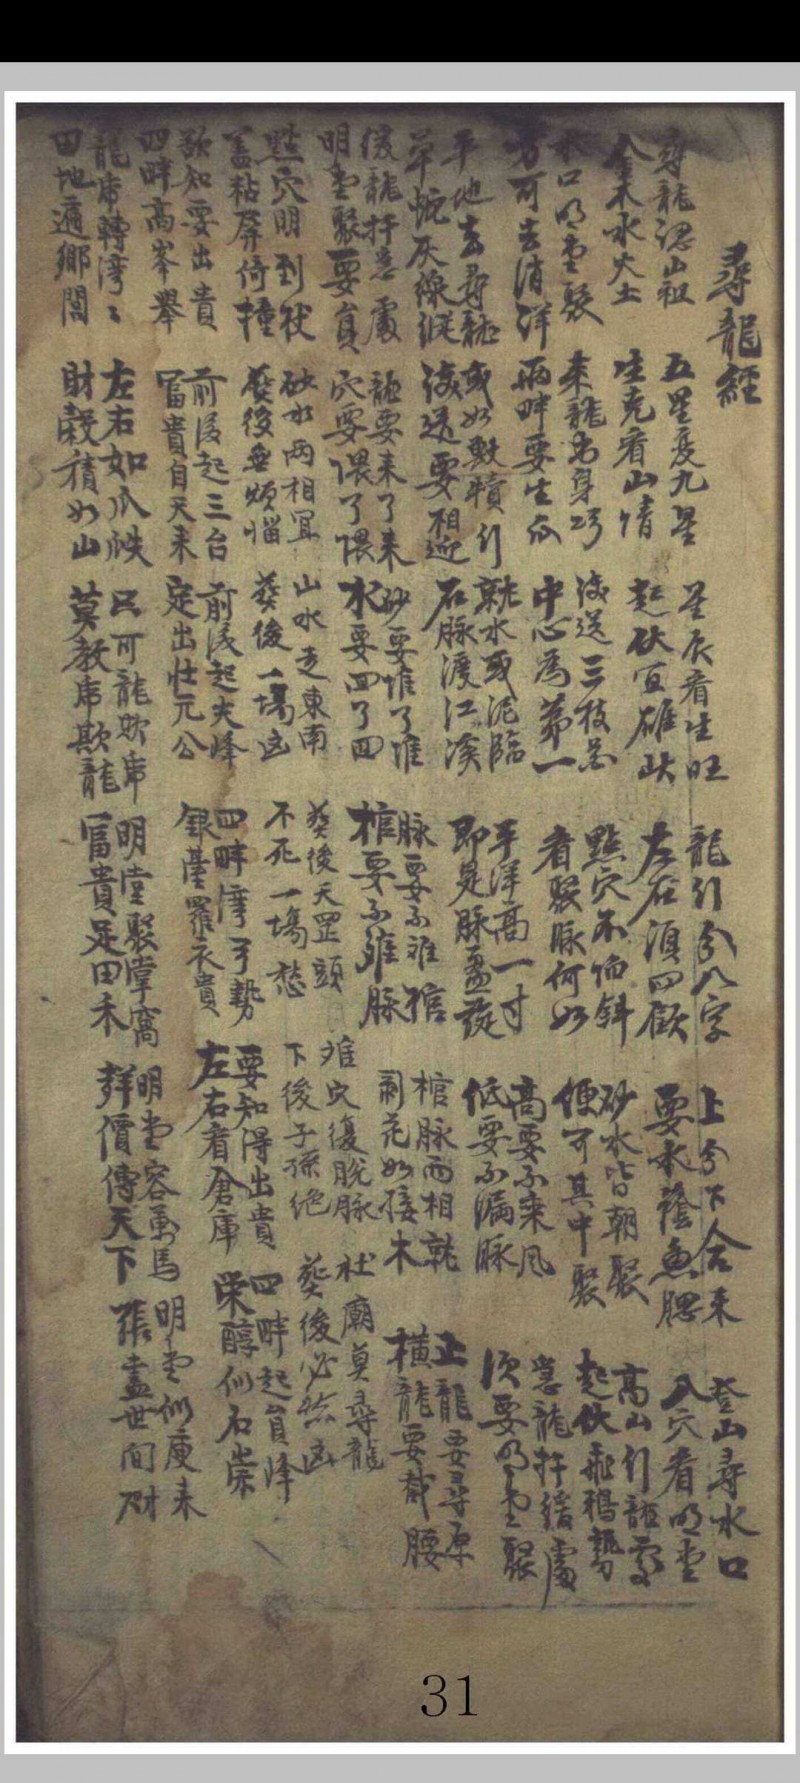 尋龍經
尋龍認山祖 五星变九星 星辰看生旺 龍引分八字 上分下合来 登山尋水口
金木水火土 生克看山情 起伏宜雄狀 左右須回顧 要水蔭魚腮 入穴看明堂
水口明堂聚 来龍出身巧 後送三枝出 點穴不怕斜 砂水皆朝聚 高山行龍處
方可去消詳 兩畔要生瓜 中心為苐一 看聚脉何如 便可其中聚 起伏飛鴉勢
平地去尋龍 或如獸犢行 就水或泥臨 平洋高一寸 高要不来風 急龍扦緩處
草蛇灰線縱 後送要相迎 石脉渡江溪 即是脉盈 低要不漏脉 須要明堂聚
緩龍扦急處 龍要来了来 砂要堆了堆 脉要不难棺 棺脉两相就 正龍要尋原
明堂聚要真 穴要偎了偎 水要回了回 棺要不难脉 花如接木 橫龍要截腰
點穴明到狀 砂水两相宜 山水走東南 葵後天罡頭 难穴復脫脉 社廟莫尋龍
盖粘犀倚撞 葵後無煩惱 葵後一塲凶 不死一塲愁 下後子孫绝 葵後必然凶
欲知要出貴 前後起三台 前後起尖峰 四畔灣弓勢 要知得出貴 四畔起員峰
四畔高峯舉 冨貴自天来 定出壮元公 銀臺羅衣貴 左右看倉庫 榮醇似石崇
龍虎轉灣〻 左右如爪 只可龍欺虎 明堂聚掌窩 明堂容萬馬 明堂似庚来
田地遍鄉閭 財榖積如山 莫教虎欺龍 冨貴足田禾 群價傳天下 張盡世间财
31